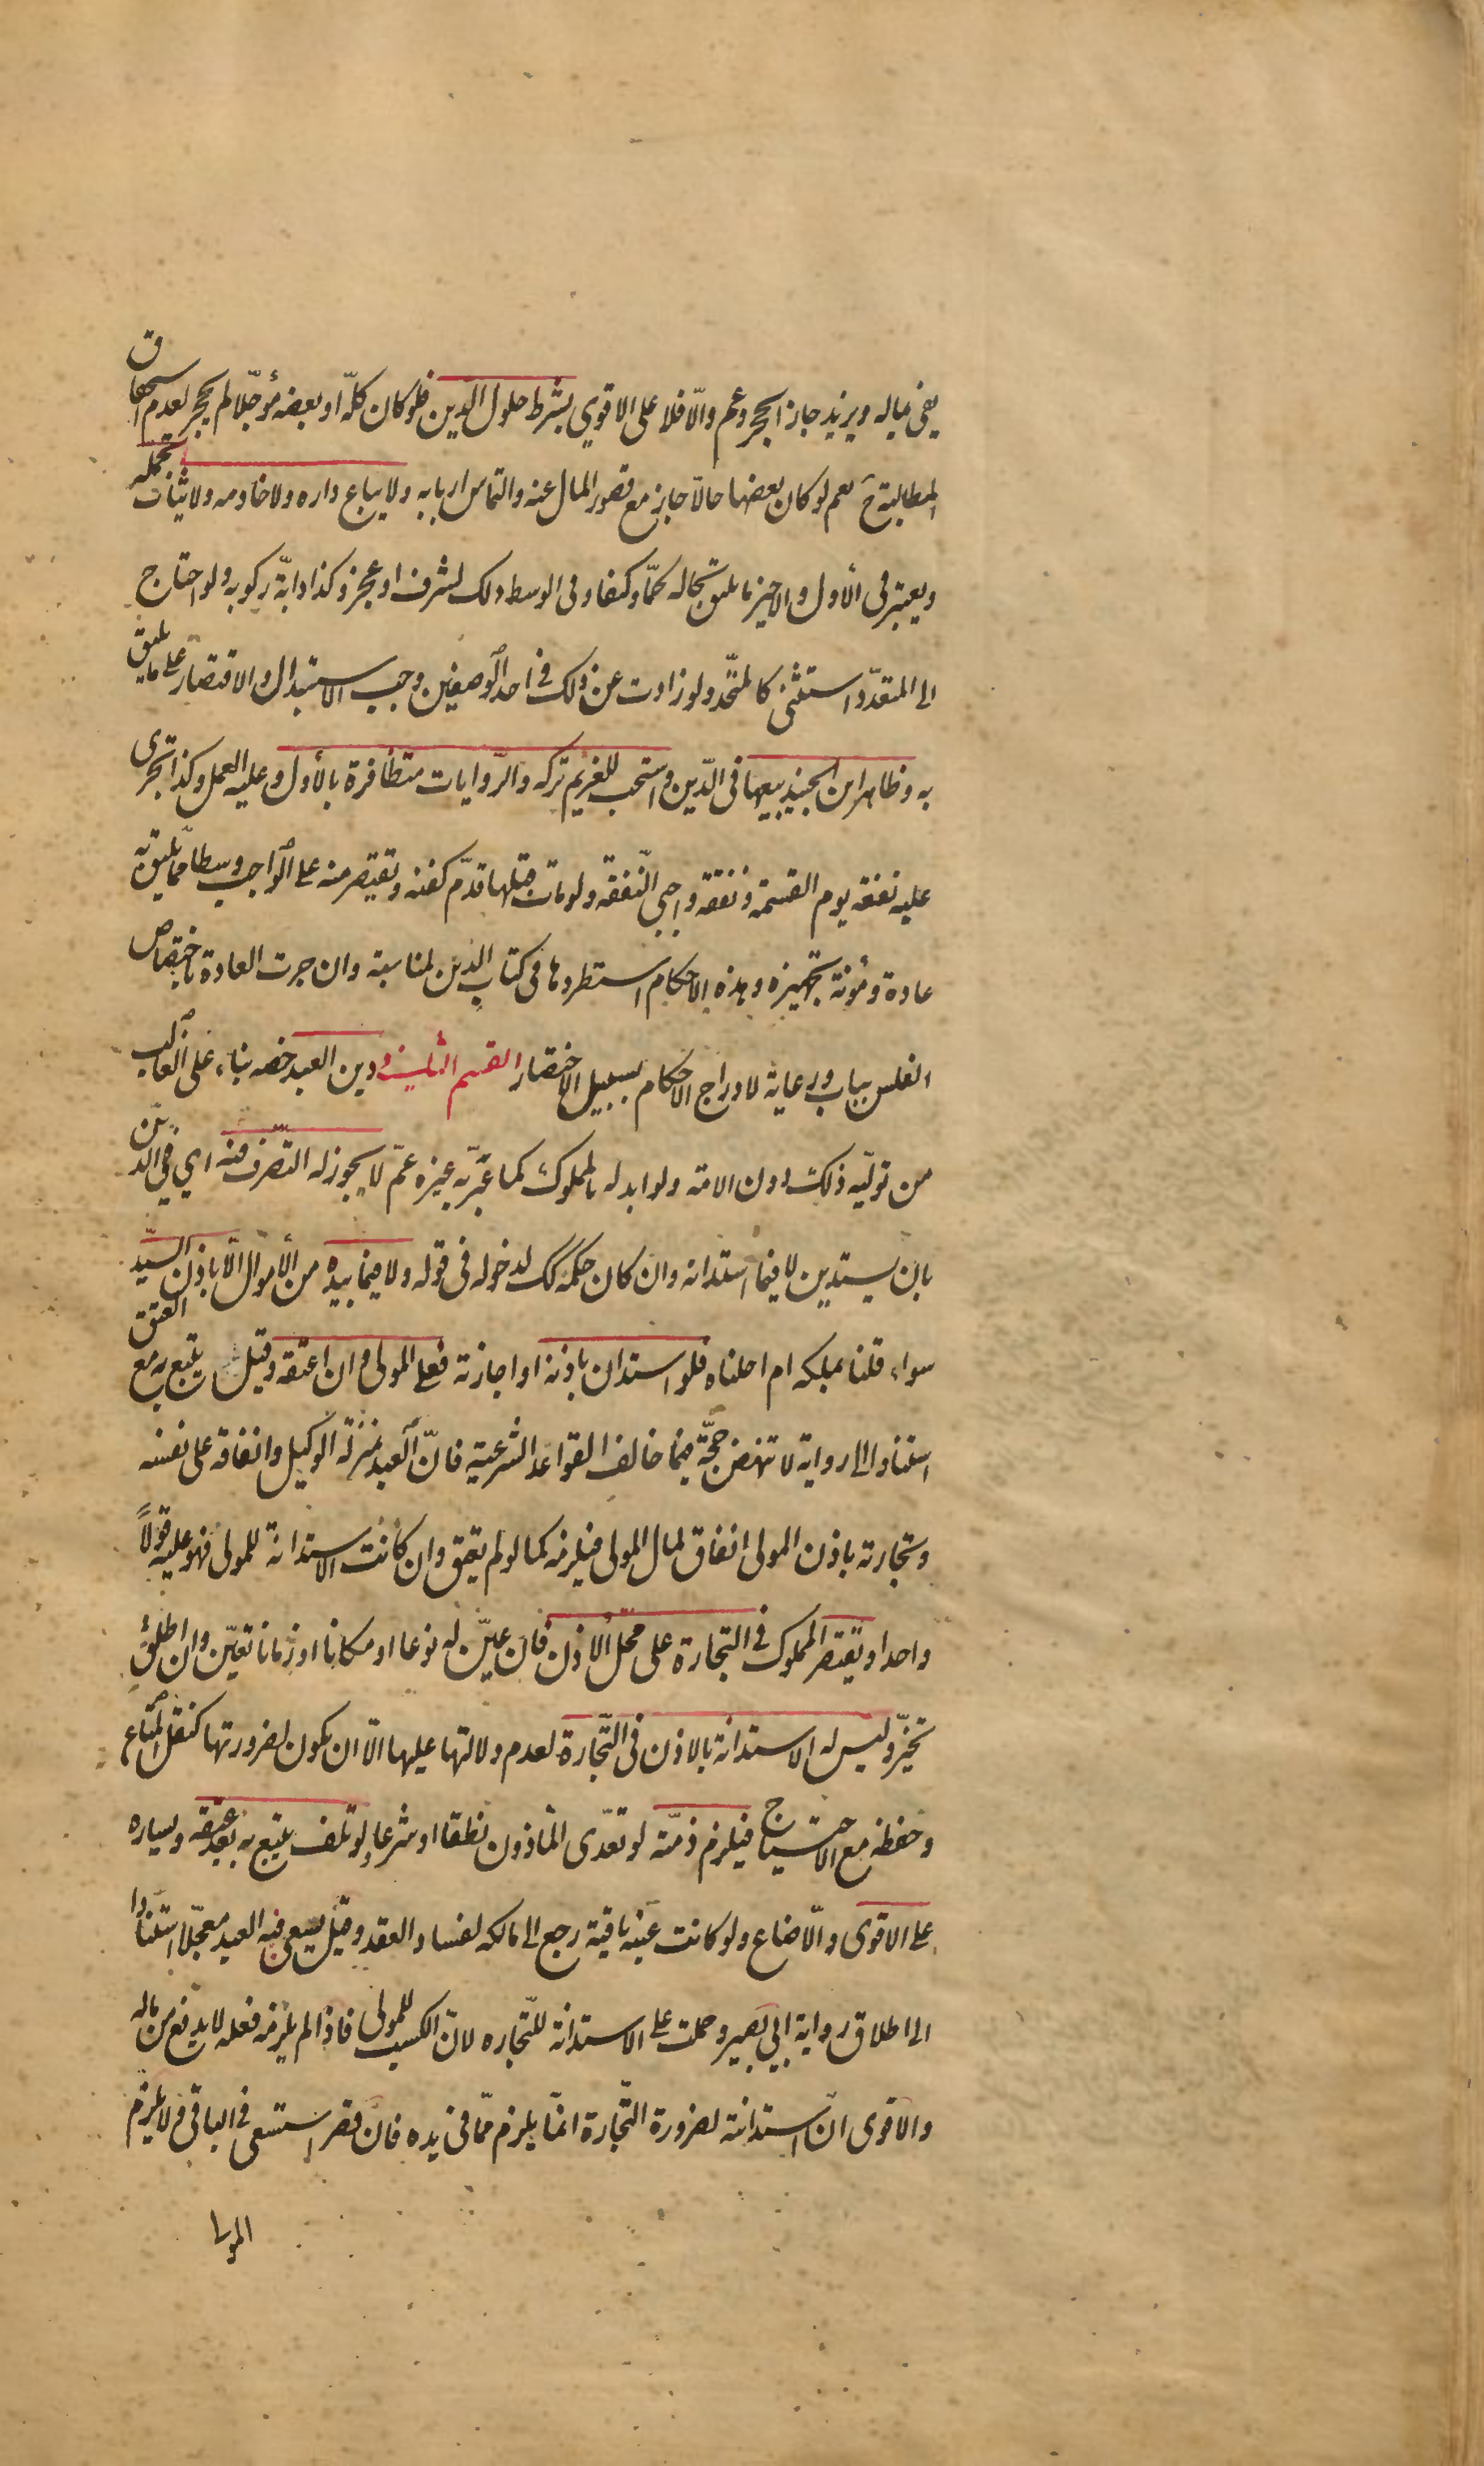 يفي بماله ويزيد جاز الحجر وعم والّا فلا على الاقوي بشرط حلول الدين فلو كان كلّه او بعضه مؤجّلا لم يحجر لعدم استحقاق
المطالبة ح نعم لو كان بعضها حالّا جاز مع قصور المال عنه والتماس اربابه ولا يباع داره ولا خادمه ولا ثياب تجمله
ويعتبر في الأول والاخير ما يليق بحاله كمّا وكيفا وفي الوسط ذلك لشرف او عجز وكذا دابّة ركوبه ولو احتاج
الى المتعدّد استثنى كالمتّحد ولو زادت عن ذلك في احد الوصفين وجب الاستبدال والاقتصار على ما يليق
به وظاهر ابن الجنيد بيعها في الدّين واستحب للغريم تركه والرّوايات متظافرة بالأول وعليه العمل وكذا تجرى
عليه نفقة يوم القسمة ونفقة واجبي النّفقة ولو مات قبلها قدّم كفنه ويقتصر منه على الواجب وسطا ممّا يليق به
عادة ومؤنة تجهيزه وهذه الاحكام استطردها في كتاب الدين لمناسبة وان جرت العادة باختصاص
الفلس بباب ورعاية لادراج الاحكام بسبيل الاختصار القسم الثاني دين العبد خصه بناء على الغالب
من تولّيه ذلك دون الامة ولو ابدله بالمملوك كما عبّر به غيره عمّ لا يجوز له التّصرف فيه اي في الدين
بان يستدين لا فيما استدانه وان كان حكمه كك لدخوله في قوله ولا فيما بيده من الأموال الّا باذن السيّد
سواء قلنا بملكه ام احلناه فلو استدان باذنه او اجازته فعلى المولى وان اعتقه وقيل يتبع به مع العتق
استنادا الى رواية لا تنهض حجّة فيما خالف القواعد الشرعية فانّ العبد بمنزلة الوكيل وانفاقه على نفسه
وتجارته باذن المولى انفاق لمال المولى فيلزمه كما لو لم يعتق وان كانت الاستدانة للمولى فهو عليه قولاً
واحدا ويقتصر المملوك في التجارة على محّل الاذن فان عيّن له نوعا او مكانا او زمانا تعيّن وان اطلق
تخيّر وليس له الاستدانة بالاذن في التّجارة لعدم دلالتها عليها الّا ان يكون لضرورتها كنقل المتاع
وحفظه مع الاحتياج فيلزم ذمّته لو تعدّى المأذون نطقا او شرعا ولو تلف يتبع به بعد عتقه ويساره
على الاقوى والّا ضاع ولو كانت عينه باقية رجع الى مالكه لفساد العقد وقيل يسعى فيه العبد معجّلا استنادا
الى اطلاق رواية ابي بصير وحملت على الاستدانة للتّجارة لانّ الكسب للمولى فاذا لم يلزمه فعله لا يدفع من ماله
والاقوى انّ استدانته لضرورة التّجارة انمّا يلزم ممّا في يده فان قصر استسعى في الباقي ولا يلزم
المولى